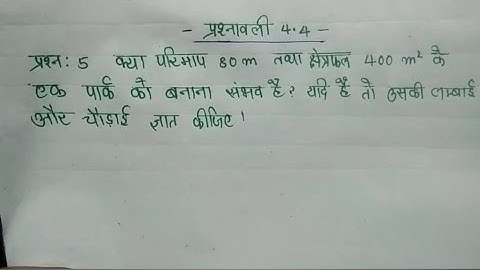 - प्रश्नावली 4.4 -
प्रश्न: 5 क्या परिमाप 80 m तथा क्षेत्रफल 400 m² के
एक पार्क को बनाना संभव है? यदि है तो उसकी लम्बाई
और चौड़ाई ज्ञात कीजिए।